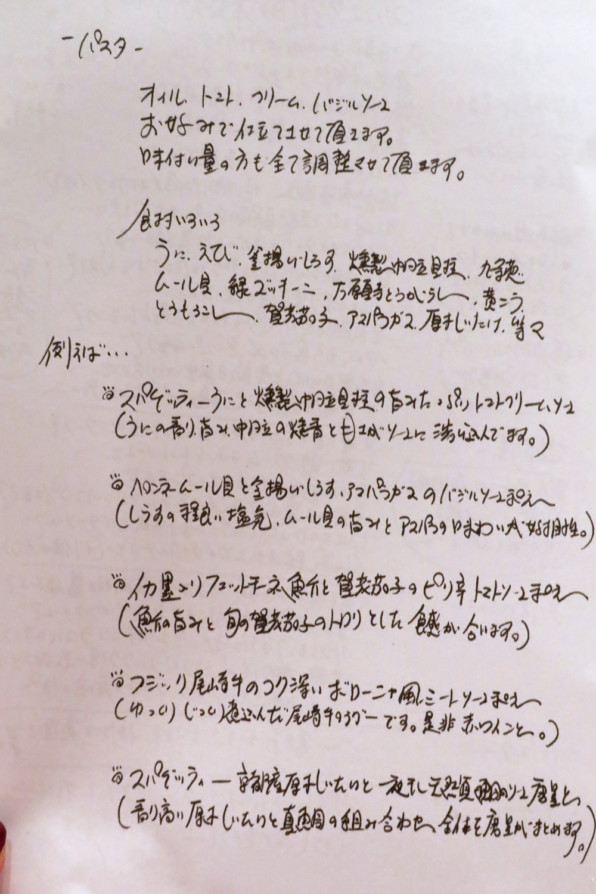 -パスタ-
オイル.トマト.クリーム.バジルソース
お好みで仕立てさせて頂きます。
味付け量の方も全て調整させて頂きます。
食材いろいろ
うに.えび.釜揚げしらす.燻製帆立貝柱.
ムール貝.緑ズッキーニ.万願寺とうがらし.
とうもろこし.賀茂茄子.アスパラガス.原木しいたけ.等々
例えば...
スパゲッティーうにと燻製帆立貝柱の旨みたっぷりトマトクリームソース
(うにの香り.旨み.帆立の燻香ともにソースに溶け込んでます。)
ペンネムール貝と釜揚げしらす.アスパラガスのバジルソース和え
(しらすの程良い塩気.ムール貝の旨みとアスパラの味わいが好相性。)
イカ墨入りフェットチーネ魚介と賀茂茄子のピリ辛トマトソース和え
(魚介の旨みと旬の賀茂茄子のトロリとした食感が合います。)
フジッリ尾崎牛のコク深いボローニャ風ミートソース和え
(ゆっくりじっくり煮込んだ尾崎牛のラグーです。是非赤ワインと。)
スパゲッティー 原木しいたけと一夜干し天然真鯛のソース唐墨と
(香り高い原木しいたけと真鯛の組み合わせ.全体を唐墨がまとめます。)